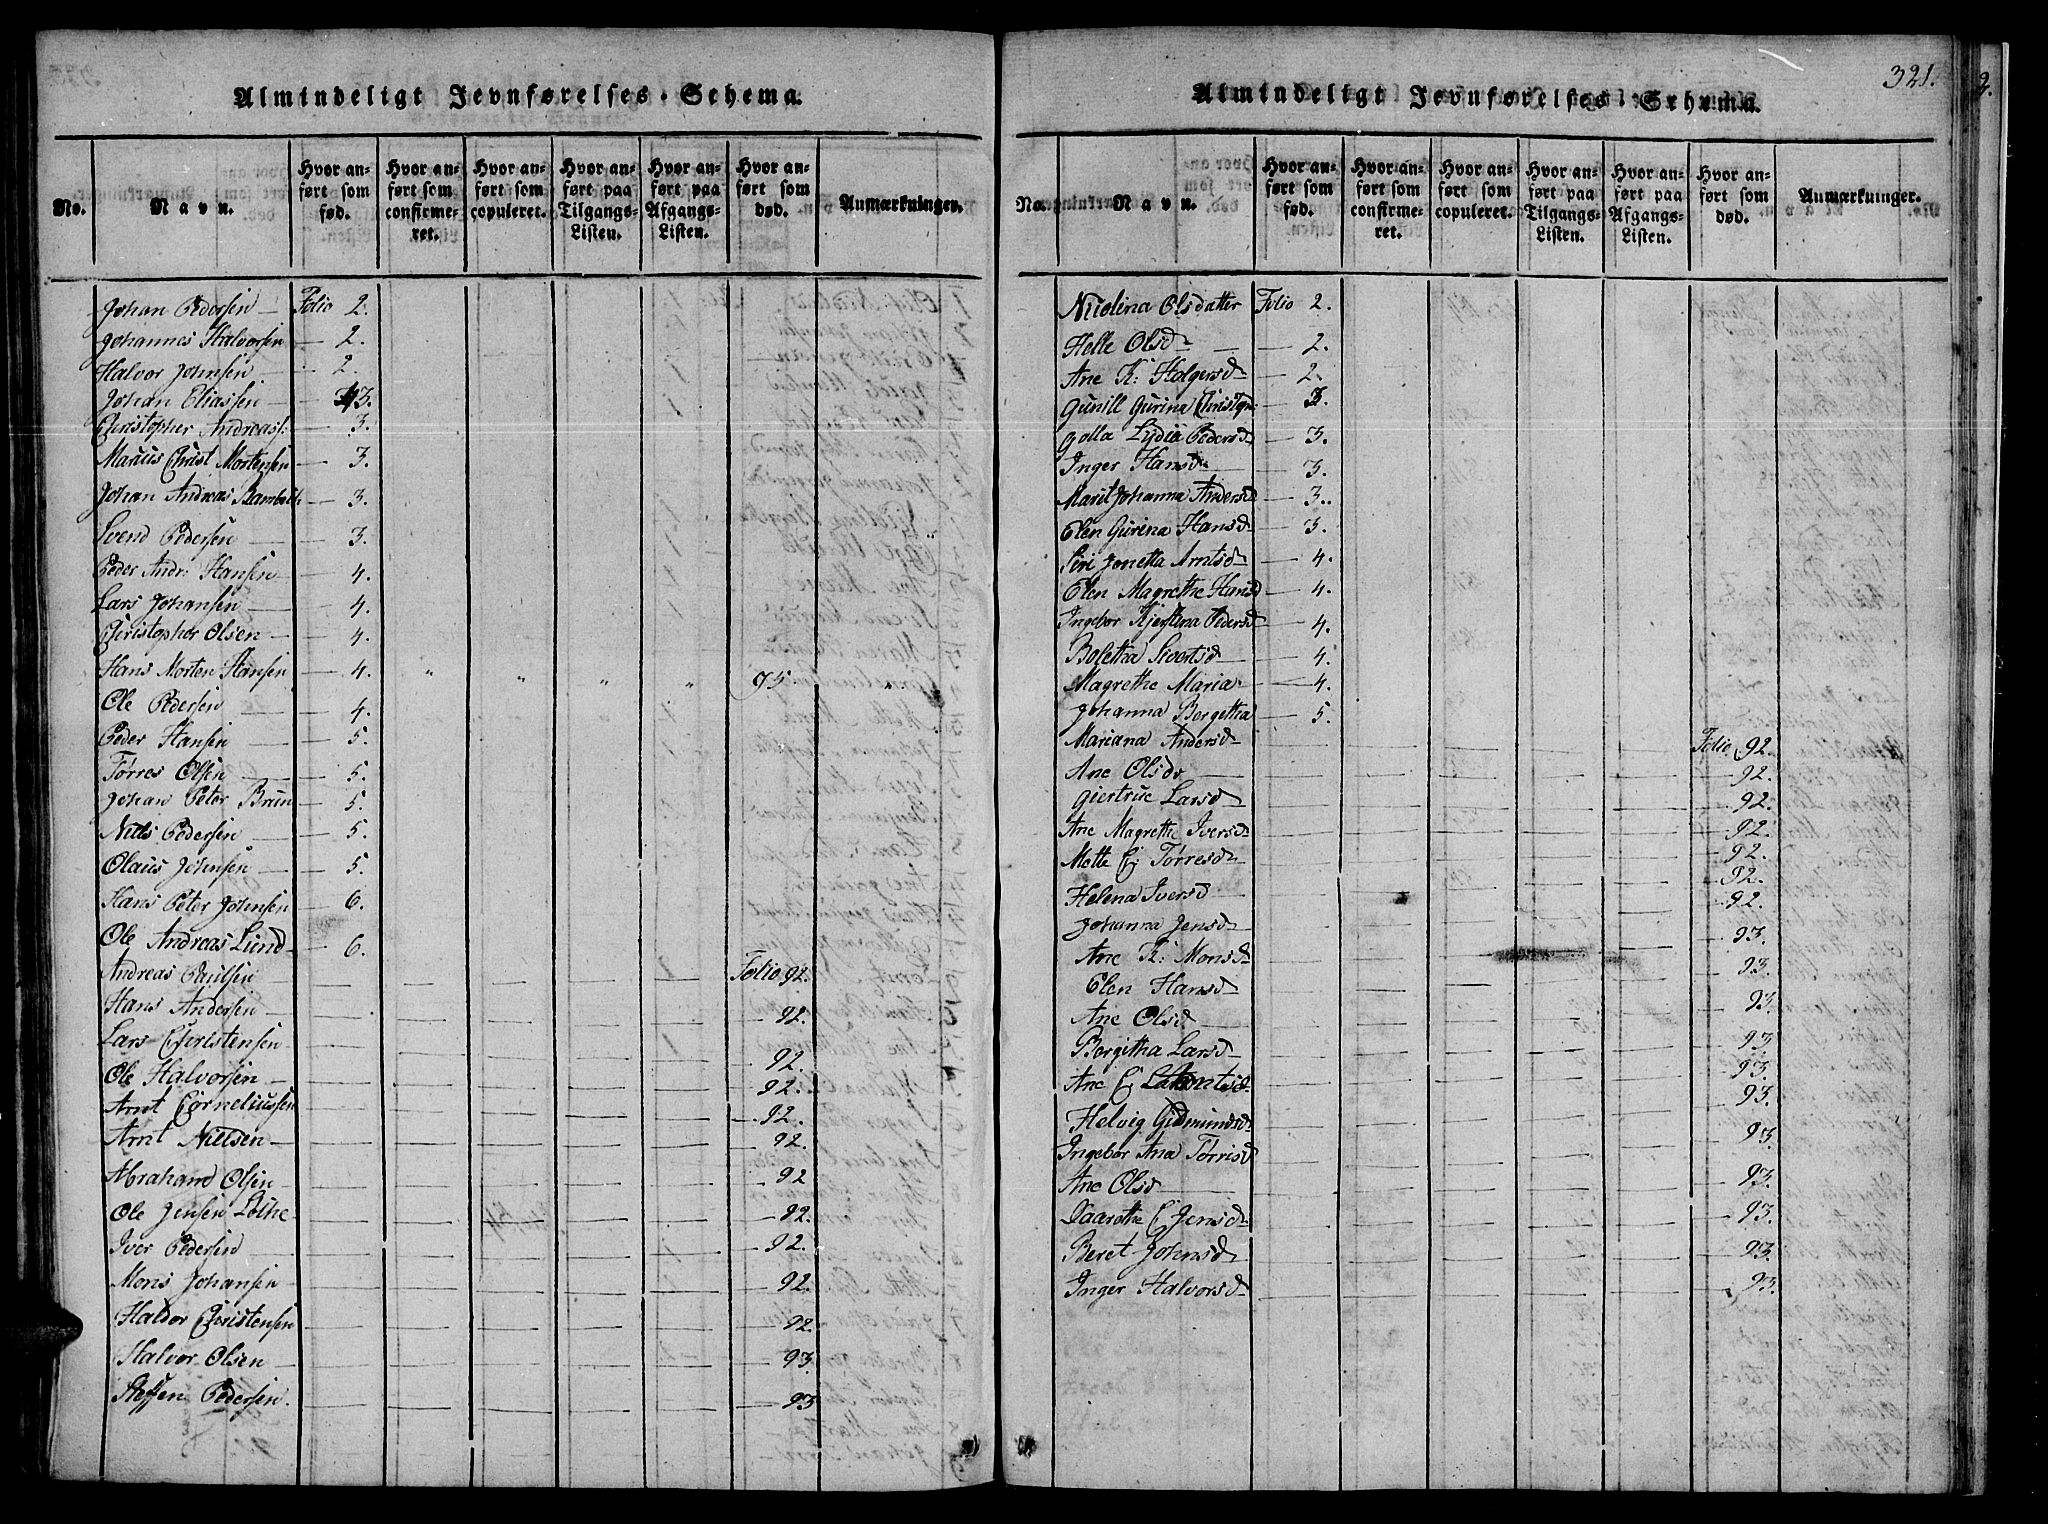 Almindeligt Jevnførelses-Schema.
No.
Navn.
Hvor anført som fød.
Hvor anført som confirmeret.
Hvor anført som copuleret.
Hvor anført paa Tilgangs-Listen.
Hvor anført paa Afgangs-Listen.
Hvor anført som død.
Anmærkninger.
Johan Pedersen Folio 2.
Johannes Halvorsen 2.
Halvor Johnsen 2.
Johan Eliassen 3.
Christopher Andreass: 3.
Marcus Christ Mortensen 3.
Johan Andreas 3.
Svend Pedersen 3.
Peder Andr: Hansen 4.
Lars Johansen 4.
Christopher Olsen 4.
Hans Morten Hansen 4. " " " " 95. "
Ole Pedersen 4.
Peder Hansen 5.
Tørres Olsen 5.
Johan Peter Brun 5.
Niels Pedersen 5.
Olaus Johnsen 5.
Hans Peter Johnsen 6.
Ole Andreas Lund 6.
Andreas Paulsen Folio 92.
Hans Andersen 92.
Lars Christensen 92.
Ole Halvorsen 92.
Arnt Corneliussen 92.
Arnt Nielsen 92.
Abraham Olsen 92
Ole Jensen Lothe 92.
Iver Pedersen 92.
Mons Johansen 92.
Haldor Christensen 92.
Halvor Olsen 93
Steffen Pedersen. 93
321.
Almindeligt Jevnførelses-Schema.
No.
Navn.
Hvor anført som fød.
Hvor anført som confirmeret.
Hvor anført som copuleret.
Hvor anført paa Tilgangs-Listen.
Hvor anført paa Afgangs-Listen.
Hvor anført som død.
Anmærkninger.
Nicolina Olsdatter Folio 2.
Helle Olsd 2.
Ane K: Holgersd 2.
Gunill Gurina Christoph: 3.
Lydia Pedersd 3.
Inger Hansd 3.
Marit Johanna Andersd 3.
Elen Gurina Hansd 3.
Siri Jonetta Arntsd 4.
Elen Magrethe Hansd 4.
Ingebor Kjerstina Pedersd 4.
Boletha Sivertsd 4.
Magrethe Maria 4.
Johanna Bergetha 5.
Mariana Andersd Folio 92.
Ane Olsdr 92.
Giertrue Larsd 92.
Ane Magrethe Iversd 92.
Mette C: Tørresd 92.
Helena Iversd 92.
Johanna Jensd 92.
Ane K: Monsd 93.
Elen Hansd 93.
Ane Olsd 93.
Bergitha Larsd 93
Ane C 93.
Helvig Gudmundsd 93.
Ingebor Ana Tørrisd 93.
Ane Olsd 93.
Jensd 93.
Beret Johnsd 93.
Inger Halvorsd 93.